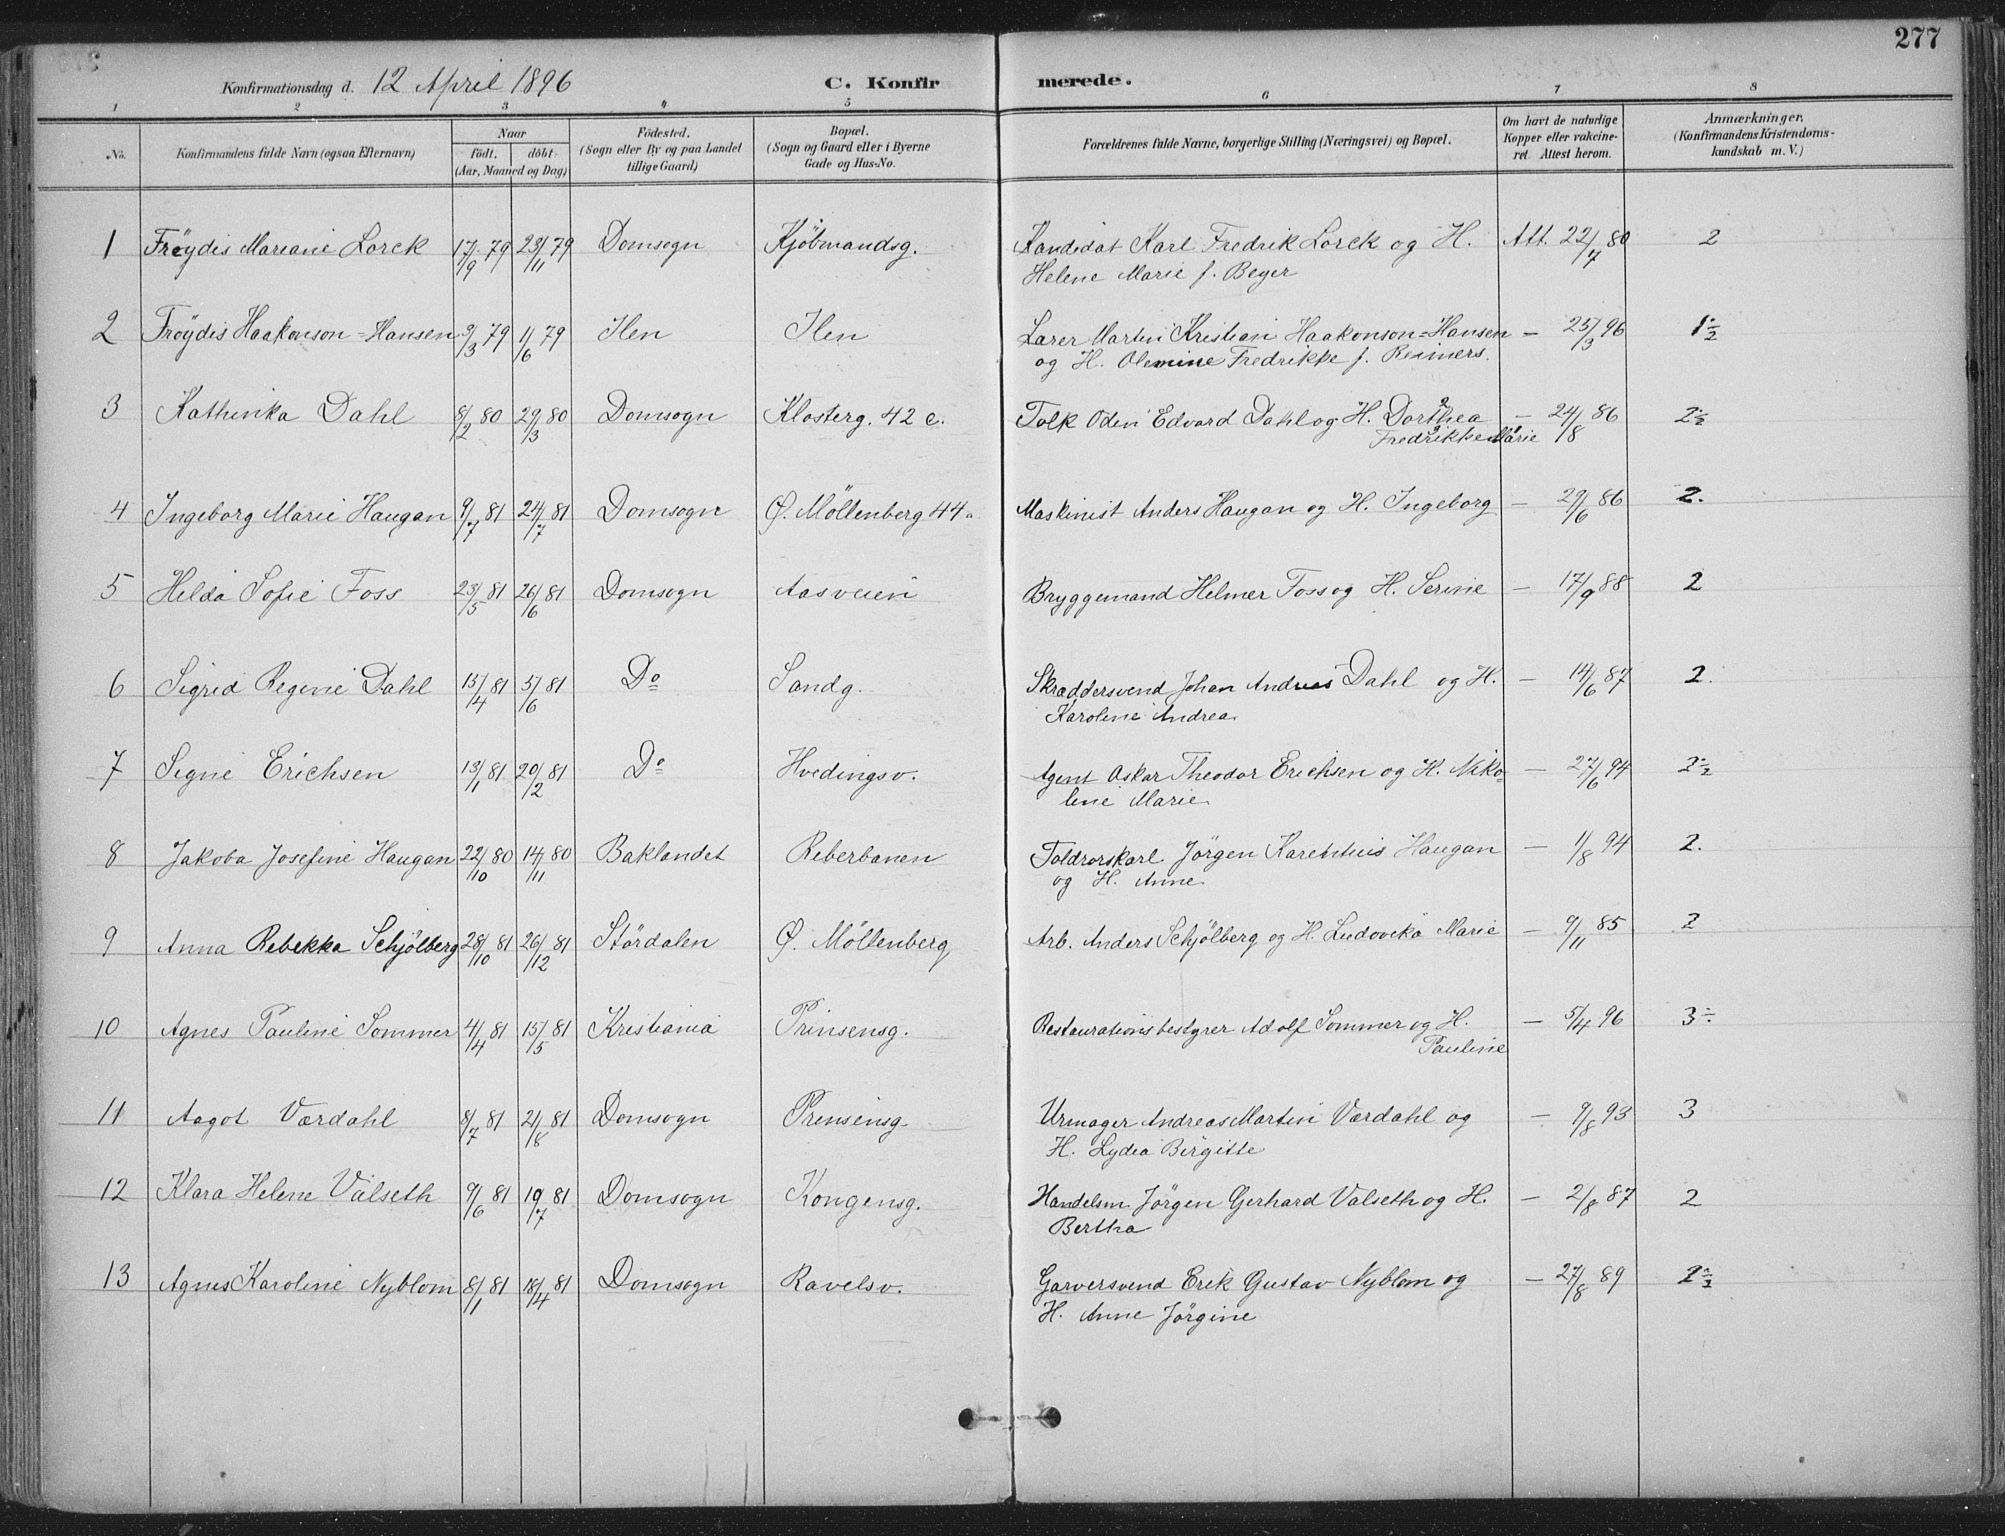 277
Konfirmationsdag d. 12 April 1896 C. Konfirmerede.
1 2 3 4 5 6 7 8
No.
Konfirmandens fulde Navn (ogsaa Efternavn)
Naar
födt. döbt.
(Aar, Maaned og Dag)
Födested.
(Sogn eller By og paa Landet
tillige Gaard)
Bopæl.
(Sogn og Gaard eller i Byerne
Gade og Hus-No.
Forældrenes fulde Navne, borgerlige Stilling (Næringsvei) og Bopæl.
Om havt de naturlige
Kopper eller vakcine-
ret Attest herom.
Anmærkninger.
(Konfirmandens Kristendoms-
kundskab m. V.)
1 Fröydis Mariane Lorck 17/9 79 23/11 79 Domsogn Kjöbmandsg. Kandidat Karl Fredrik Lorck og H. Att. 22/7 80 2
Helene Marie f. Beyer
2 Fröydis Haakonson=Hansen 3/3 79 1/6 79 Ilen Ilen Lærer Martin Kristian Haakonson=Hansen — 25/3 96 1 ÷ 2
og H. Olemine Fredrikke f. Reimers.
3 Kathinka Dahl 8/2 80 29/3 80 Domsogn Klosterg. 42 c. Tolk Oden Edvard Dahl og H. Dorthea — 24/8 86 2 ÷ 2
Fredrikke Marie
4 Ingeborg Marie Haugan 9/7 81 24/7 81 Domsogn Ø. Möllenberg 44a Maskinist Anders Haugan og H. Ingeborg — 29/6 86 2.
5 Hilda Sofie Foss 23/5 81 26/6 81 Domsogn Aasveien Bryggemand Helmer Foss og H. Serine — 17/9 88 2
6 Sigrid Regine Dahl 15/4 81 5/6 81 Do Sandg. Skræddersvend Johan Andreas Dahl og H. — 14/6 87 2.
Karoline Andrea
7 Signe Erichsen 13/1 81 20/2 81 Do Hvedingsv. Agent Oskar Theodor Erichsen og H. Niko- — 27/6 94 2 ÷ 2
line Marie
8 Jakoba Josefine Haugan 22/10 80 14/11 80 Baklandet Reberbanen Toldrorskarl Jörgen Karenthius Haugan — 1/8 94 2.
og H. Anne
9 Anna Rebekka Schjölberg 28/10 81 26/12 81 Stördalen Ø. Möllenberg Arb. Anders Schjölberg og H. Ludovika Marie — 9/11 85 2
10 Agnes Pauline Sommer 4/4 81 15/5 81 Kristiania Prinsensg. Restaurationsbestyrer Adolf Sommer og H. — 5/4 96 3 ÷
Pauline
11 Aagot Værdahl 8/7 81 21/8 81 Domsogn Prinsensg. Urmager Andreas Martin Værdahl og — 9/8 93 3
H. Lydia Birgitte
12 Klara Helene Valseth 9/6 81 19/7 81 Domsogn Kongensg. Handelsm. Jörgen Gerhard Valseth og H. — 2/8 87 2
Bertha
13 Agnes Karoline Nyblom 8/1 81 18/4 81 Domsogn Ravelsv. Garversvend Erik Gustav Nyblom og — 27/8 89 2 ÷ 2
H. Anne Jörgine